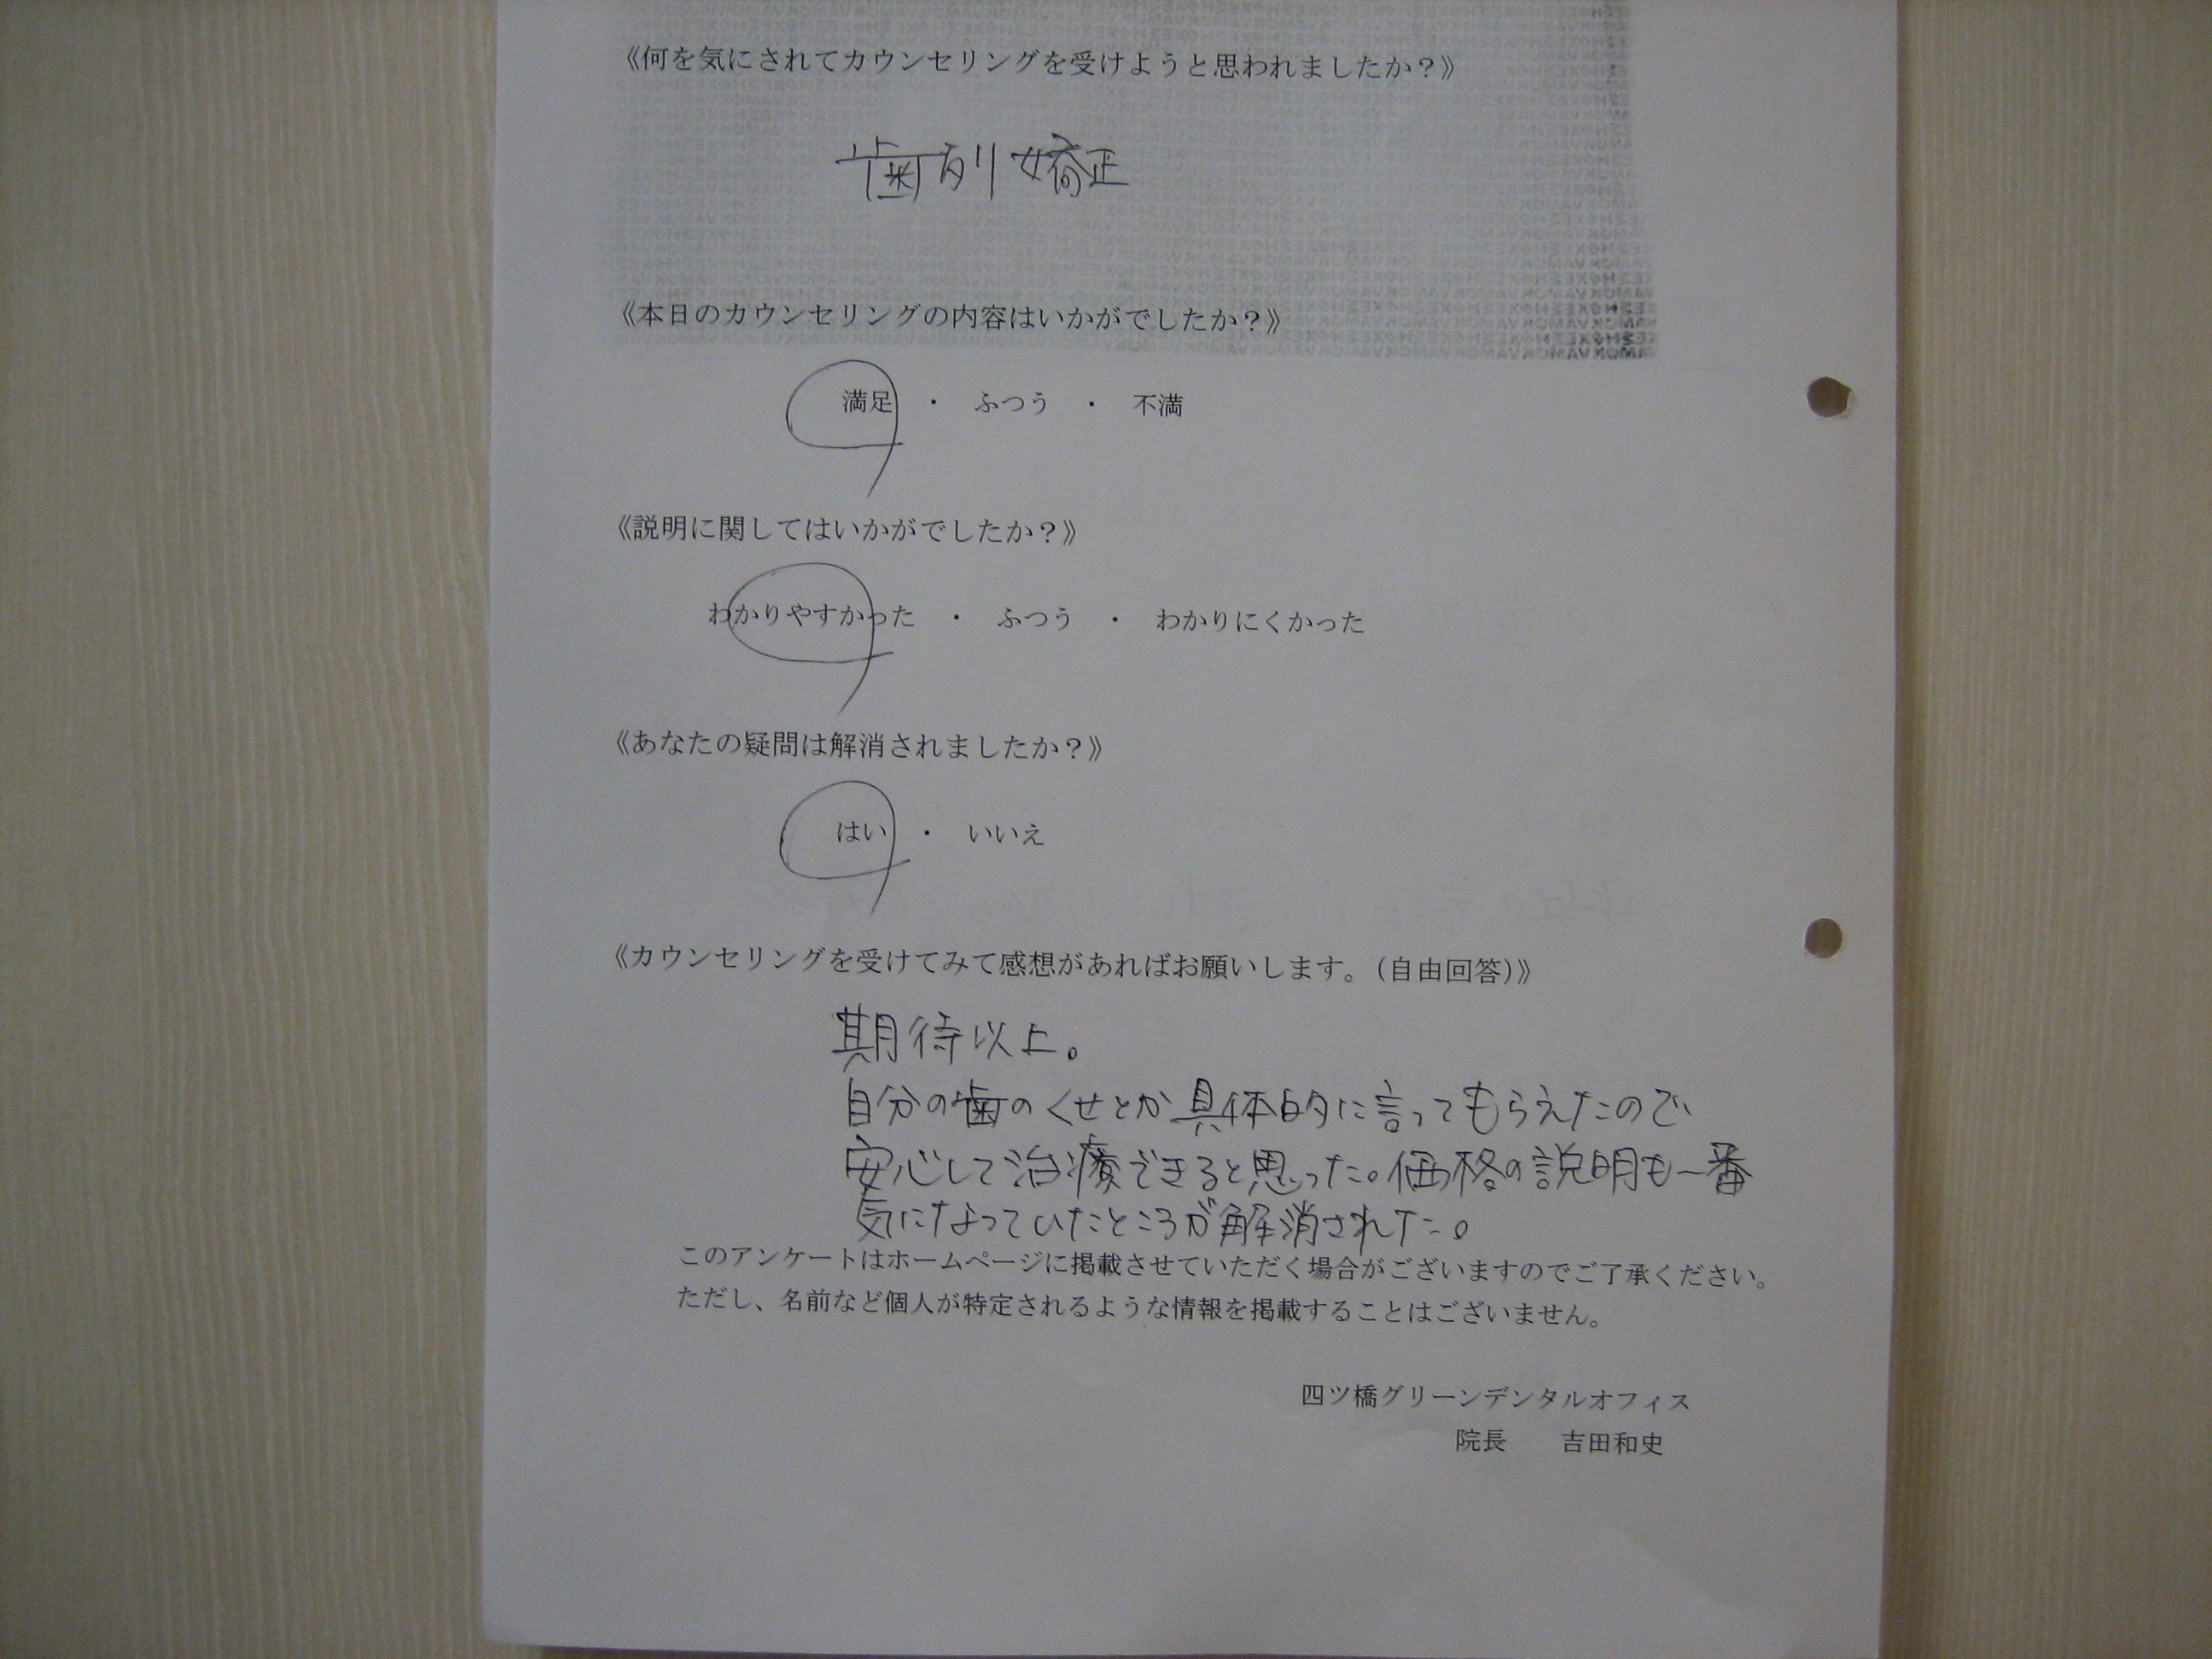 《何を気にされてカウンセリングを受けようと思われましたか？》
歯列矯正
《本日のカウンセリングの内容はいかがでしたか？》
満足　・　ふつう　・　不満
《説明に関してはいかがでしたか？》
わかりやすかった　・　ふつう　・　わかりにくかった
《あなたの疑問は解消されましたか？》
はい　・　いいえ
《カウンセリングを受けてみて感想があればお願いします。（自由回答）》
期待以上。
自分の歯のくせとか具体的に言ってもらえたので
安心して治療できると思った。価格の説明も一番
気になっていたところが解消された。
このアンケートはホームページに掲載させていただく場合がございますのでご了承ください。
ただし、名前など個人が特定されるような情報を掲載することはございません。
四ツ橋グリーンデンタルオフィス
院長　　吉田和史